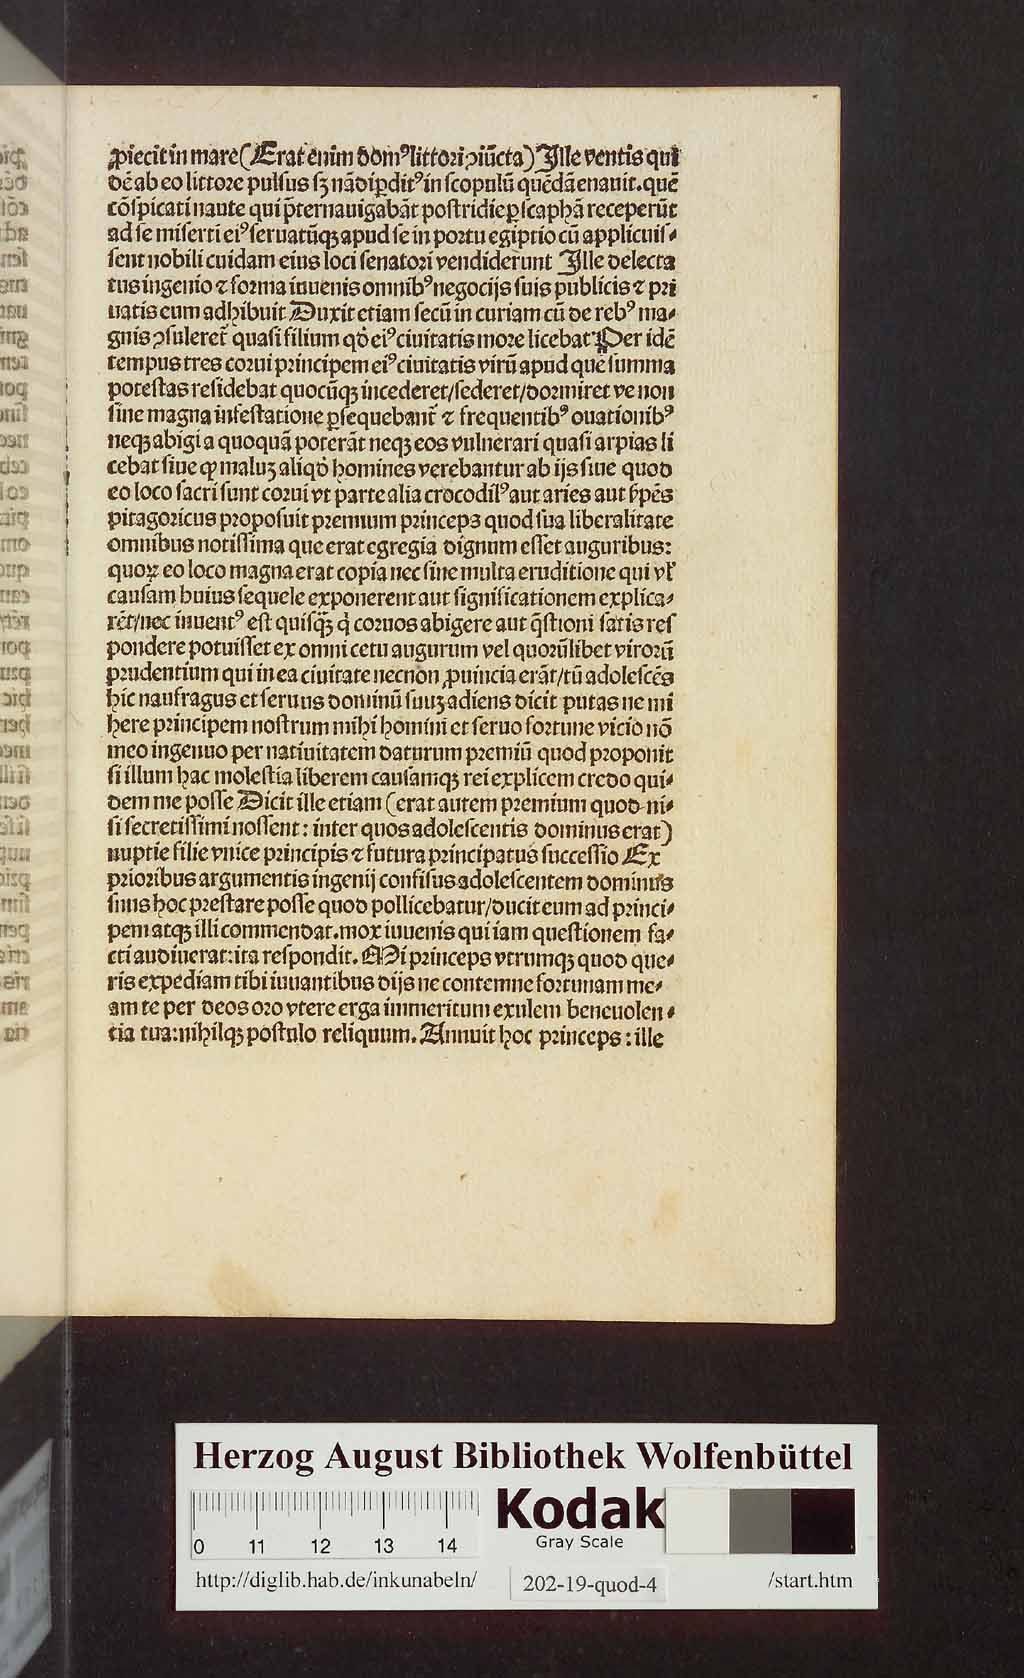 ꝓiecit in mare (Erat enim domꝰ littori ↄiūcta) Ille ventis qui
dē ab eo littore pulsus sꝫ nādi ꝑditꝰ in scopulū quēdā enauit. quē
cōspicati naute qui p̄ternauigabāt postridie ꝑ scaphā receperūt
ad se miserti eiꝰ seruatūqꝫ apud se in portu egiptio cū applicuis⸗
sent nobili cuidam eius loci senatori vendiderunt Ille delecta
tus ingenio ⁊ forma iuuenis omnibꝰ negocijs suis publicis ⁊ pri
uatis eum adhibuit Duxit etiam secū in curiam cū de rebꝰ ma⸗
gnis ↄsuleret̄ quasi filium qd̄ eiꝰ ciuitatis more licebat Per idē
tempus tres corui principem eiꝰ ciuitatis virū apud quē summa
potestas residebat quocūqꝫ incederet/sederet/dormiret ve non
sine magna infestatione ꝑsequebant̄ ⁊ frequentibꝰ ouationibꝰ
neqꝫ abigi a quoquā poterāt neqꝫ eos vulnerari quasi arpias li
cebat siue ꝙ maluꝫ aliqd̄ homines verebantur ab ijs siue quod
eo loco sacri sunt corui vt parte alia crocodilꝰ aut aries aut s̄pēs
pitagoricus proposuit premium princeps quod sua liberalitate
omnibus notissima que erat egregia dignum esset auguribus:
quoꝝ eo loco magna erat copia nec sine multa eruditione qui vl̄
causam huius sequele exponerent aut significationem explica⸗
rēt/nec inuentꝰ est quisq̄ꝫ q̇ coruos abigere aut q̄stioni satis res
pondere potuisset ex omni cetu augurum vel quorūlibet virorū
prudentium qui in ea ciuitate necnon ꝓuincia erāt/tū adolescēs
hic naufragus et seruus dominū suuꝫ adiens dicit putas ne mi
here principem nostrum mihi homini et seruo fortune vicio nō
meo ingenuo per natiuitatem daturum premiū quod proponit
si illum hac molestia liberem causamqꝫ rei explicem credo qui⸗
dem me posse Dicit ille etiam (erat autem premium quod ni⸗
si secretissimi nossent: inter quos adolescentis dominus erat)
nuptie filie vnice principis ⁊ futura principatus successio Ex
prioribus argumentis ingenij confisus adolescentem dominus
suus hoc prestare posse quod pollicebatur/ducit eum ad princi⸗
pem atqꝫ illi commendat. mox iuuenis qui iam questionem fa⸗
cti audiuerat: ita respondit. Mi princeps vtrumqꝫ quod que⸗
ris expediam tibi iuuantibus dijs ne contemne fortunam me⸗
am te per deos oro vtere erga immeritum exulem beneuolen⸗
tia tua: nihilqꝫ postulo reliquum. Annuit hoc princeps: ille
Herzog August Bibliothek Wolfenbüttel
0 11 12 13 14
Kodak
Gray Scale
http://diglib.hab.de/inkunabeln/ 202-19-quod-4 /start.htm